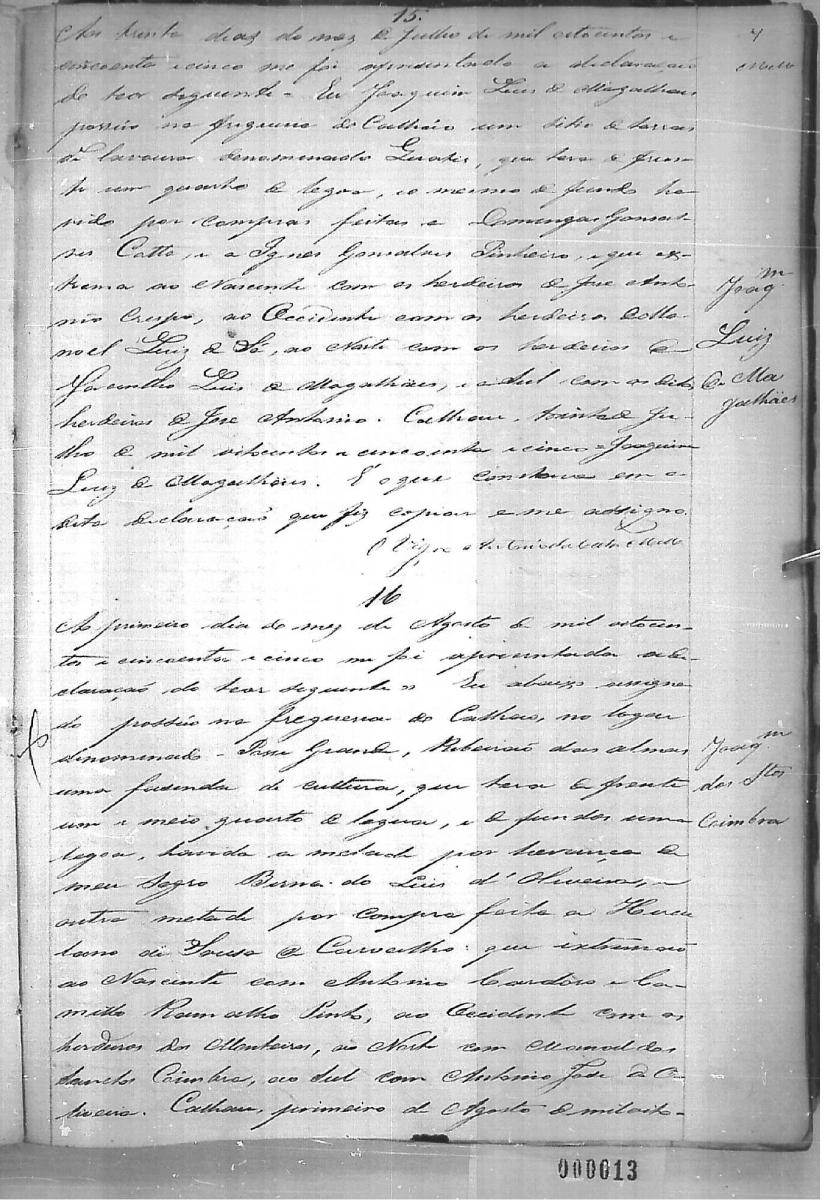 15.
Aos trinta dias do mez de Julho de mil oitocentos e
cincoenta e cinco me foi apresentada a declaração
do teor seguinte = Eu Joaquim Luis de Magalhães
possuo na freguesia do Calhão um sitio de terras
de lavoura denominado, que tera de fren-
te um quarto de legoa, e o mesmo de fundo ha-
vido por compras feitas a Domingas Gonsal-
ves Catto, e a Ignes Gonsalves Pinheiro, e que ex-
trema ao Nascente com os herdeiros de José Anto-
nio Crespo, ao Occidente com os herdeiros de Ma-
noel Luiz de Sá, ao Norte com os herdeiros de
Jacintho Luis de Magalhães, e a Sul com os ditos
herdeiros de José Antonio. Calhau, trinta de Ju-
lho de mil oitocentos e cincoenta e cinco = Joaquim
Luiz de Magalhães. É o que constava em a
dita declaração que fiz copiar e me assigno.
O Vigro Antonio da Mello
7
Mello
Joaqm
Luiz
de Ma
galhães
16
Ao primeiro dia do mez de Agosto de mil oitocen-
tos e cincoenta e cinco me foi apresentada a de-
claração do teor seguinte = Eu abaixo assigna-
do possúo na freguesia do Calhao, no logar
denominado - Passe Grande, Ribeirão das almas
uma fazenda de cultura, que tera de frente
um e meio quarto de legua, e de fundos uma
legoa, havida a metade por herança de
meu sogro Bernardo Luis d'Oliveira, e
outra metade por compra feita a Hercu-
lano de Sousa e Carvalho: que extremão
ao Nascente com Antonio Cardoso e Ca-
millo Ramalho Pinto, ao Occidente com os
herdeiros dos Monteiros, ao Norte com Manoel dos
Sanctos Coimbra, ao Sul com Antonio José de O-
liveira. Calhau, primeiro de Agosto de mil oito-
Joaqm
dos Stos
Coimbra
000013